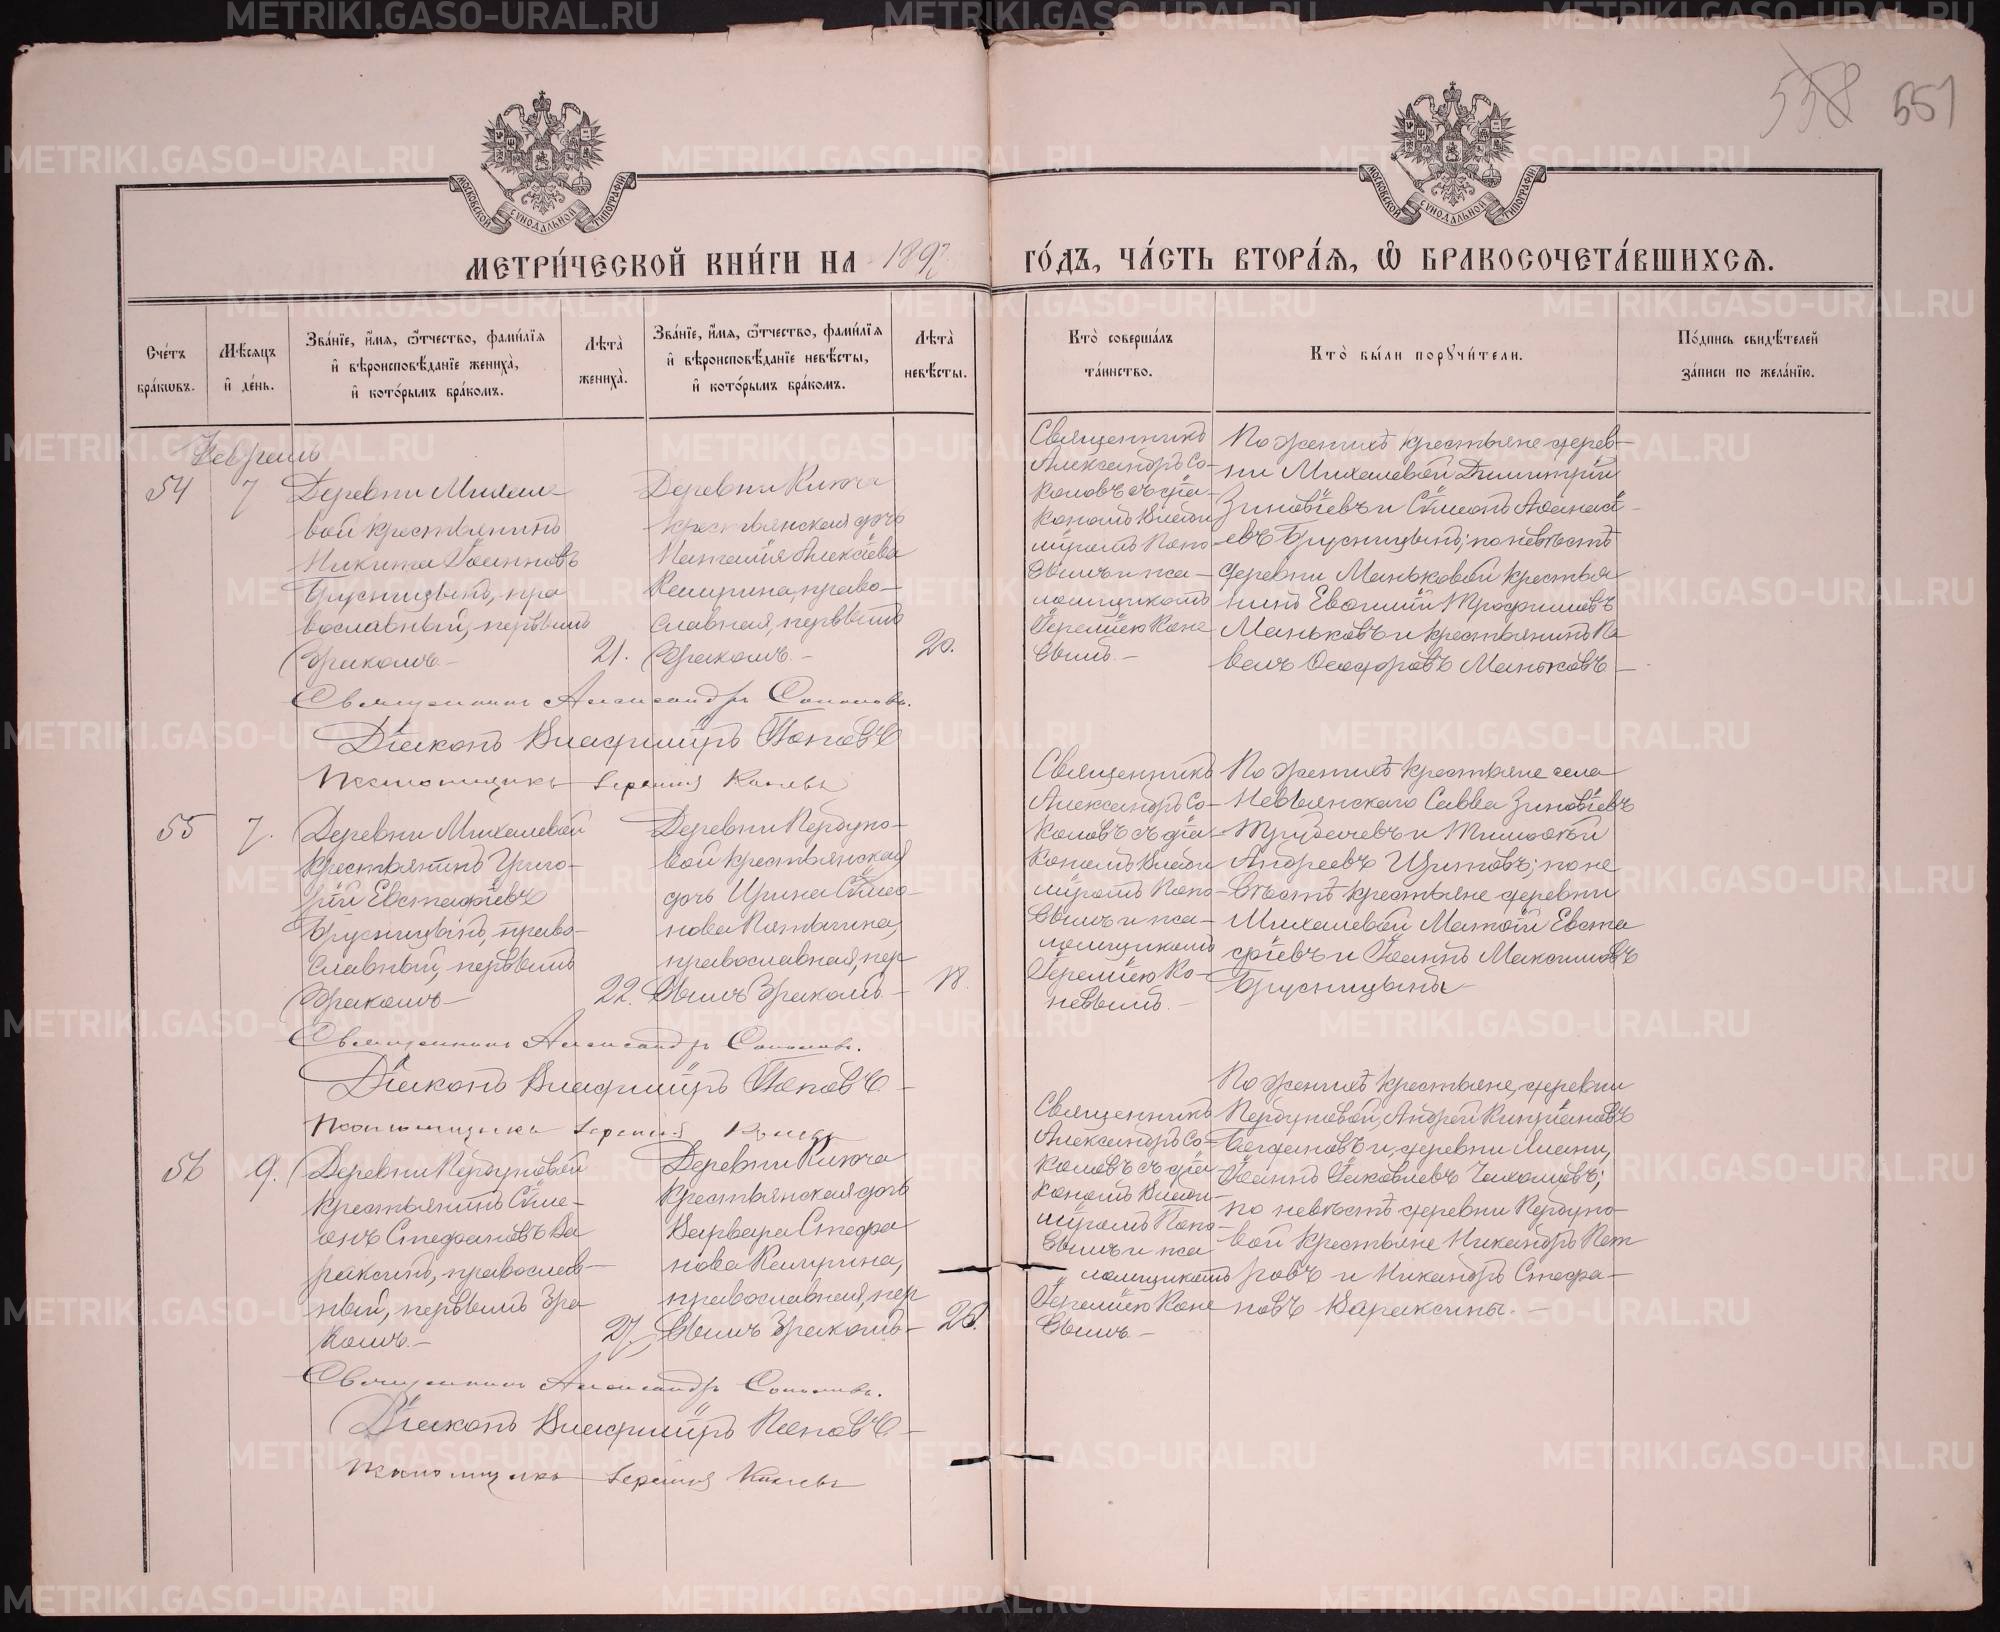 558 551
МОСКОВСКОЙ СѴНОДАЛЬНОЙ ТИПОГРАФІИ
МОСКОВСКОЙ СѴНОДАЛЬНОЙ ТИПОГРАФІИ
МЕТРИ́ЧЕСКОЙ КНИ́ГИ НА 1897 ГО́ДЪ, ЧА́СТЬ ВТОРА́Я, Ѡ҆ БРАКОСОЧЕТА́ВШИХСЯ.
Сче́тъ
бра́кѡвъ.
Мѣ́сяцъ
и҆ де́нь.
Зва́нїе, и҆́мя, ѻ҆́тчество, фами́лїя
и҆ вѣроисповѣ́данїе жениха̀,
и҆ кото́рымъ бра́комъ.
Лѣ́та
жениха̀.
Зва́нїе, и҆́мя, ѻ҆́тчество, фами́лїя
и҆ вѣроисповѣ́данїе невѣ́сты,
и҆ кото́рымъ бра́комъ.
Лѣ́та
невѣ́сты.
Кто̀ соверша́лъ
та́инство.
Кто̀ бы́ли порꙋчи́тели.
По́дпись свидѣ́телей
за́писи по жела́нїю.
Февраль
54
7
Деревни Михале-
вой крестьянинъ
Никита Іоанновъ
Брусницынъ, пра
вославный, первымъ
бракомъ.-
21.
Деревни Ключа
крестьянская дочь
Наталія Алексіева
православная, первымъ
бракомъ.-
20.
Священникъ
Александръ Со-
коловъ съ діа-
кономъ Влади
міромъ Попо-
вымъ и пса-
ломщикомъ
Іереміею Коне
вымъ.-
По женихѣ крестьяне дерев-
ни Михалевой Димитрій
Зиновіевъ и Сѵмеонъ Аѳанасі-
евъ Брусницыны; по невѣстѣ
деревни Маньковой крестья
нинъ Евѳимій Трофимовъ
Маньковъ и крестьянинъ Па
велъ Ѳеодоровъ Маньковъ-
Священникъ Александръ Соколовъ.
Діаконъ Владиміръ Поповъ
Псаломщикъ Іеремія Коневъ
55
7.
Деревни Михалевой
крестьянинъ Григо-
рій Евстафіевъ
Брусницынъ, право-
славный, первымъ
бракомъ-
22.
Деревни Пердуно-
вой крестьянская
дочь Ирина Сѵмео-
нова
православная, пер
вымъ бракомъ.-
18.
Священникъ
Александръ Со-
коловъ съ діа-
кономъ Влади
міромъ Попо-
вымъ и пса-
ломщикомъ
Іереміею Ко-
невымъ.-
По женихѣ крестьяне села
Невьянскаго Савва Зиновіевъ
Трубачевъ и Тимоѳей
Андреевъ по не
вѣстѣ крестьяне деревни
Михалевой Матѳій Евста
фіевъ и Іоаннъ Максимовъ
Брусницыны-
Священникъ Александръ Соколовъ.
Діаконъ Владиміръ Поповъ-
Псаломщикъ Іеремія Коневъ
56
9.
Деревни Пердуновой
крестьянинъ Сѵме-
онъ Стефановъ Ва
раксинъ, православ-
ный, первымъ бра
комъ.-
27.
Деревни Ключа
крестьянская дочь
Варвара Стефа
нова
православная, пер
вымъ бракомъ-
Священникъ
Александръ Со-
коловъ съ діа
кономъ Влади-
міромъ Попо-
вымъ и пса
ломщикомъ
Іереміею Коне
вымъ-
По женихѣ крестьяне, деревни
Пердуновой, Андрей Кипріановъ
Богдановъ и деревни
Іоаннъ Іаковлевъ
по невѣстѣ деревни Пердуно-
вой крестьяне Никандръ Пет
ровъ и Никандръ Стефа-
новъ Вараксины.-
Священникъ Александръ Соколовъ.
Діаконъ Владиміръ Поповъ-
Псаломщикъ Іеремія Коневъ
METRIKI.GASO-URAL.RU